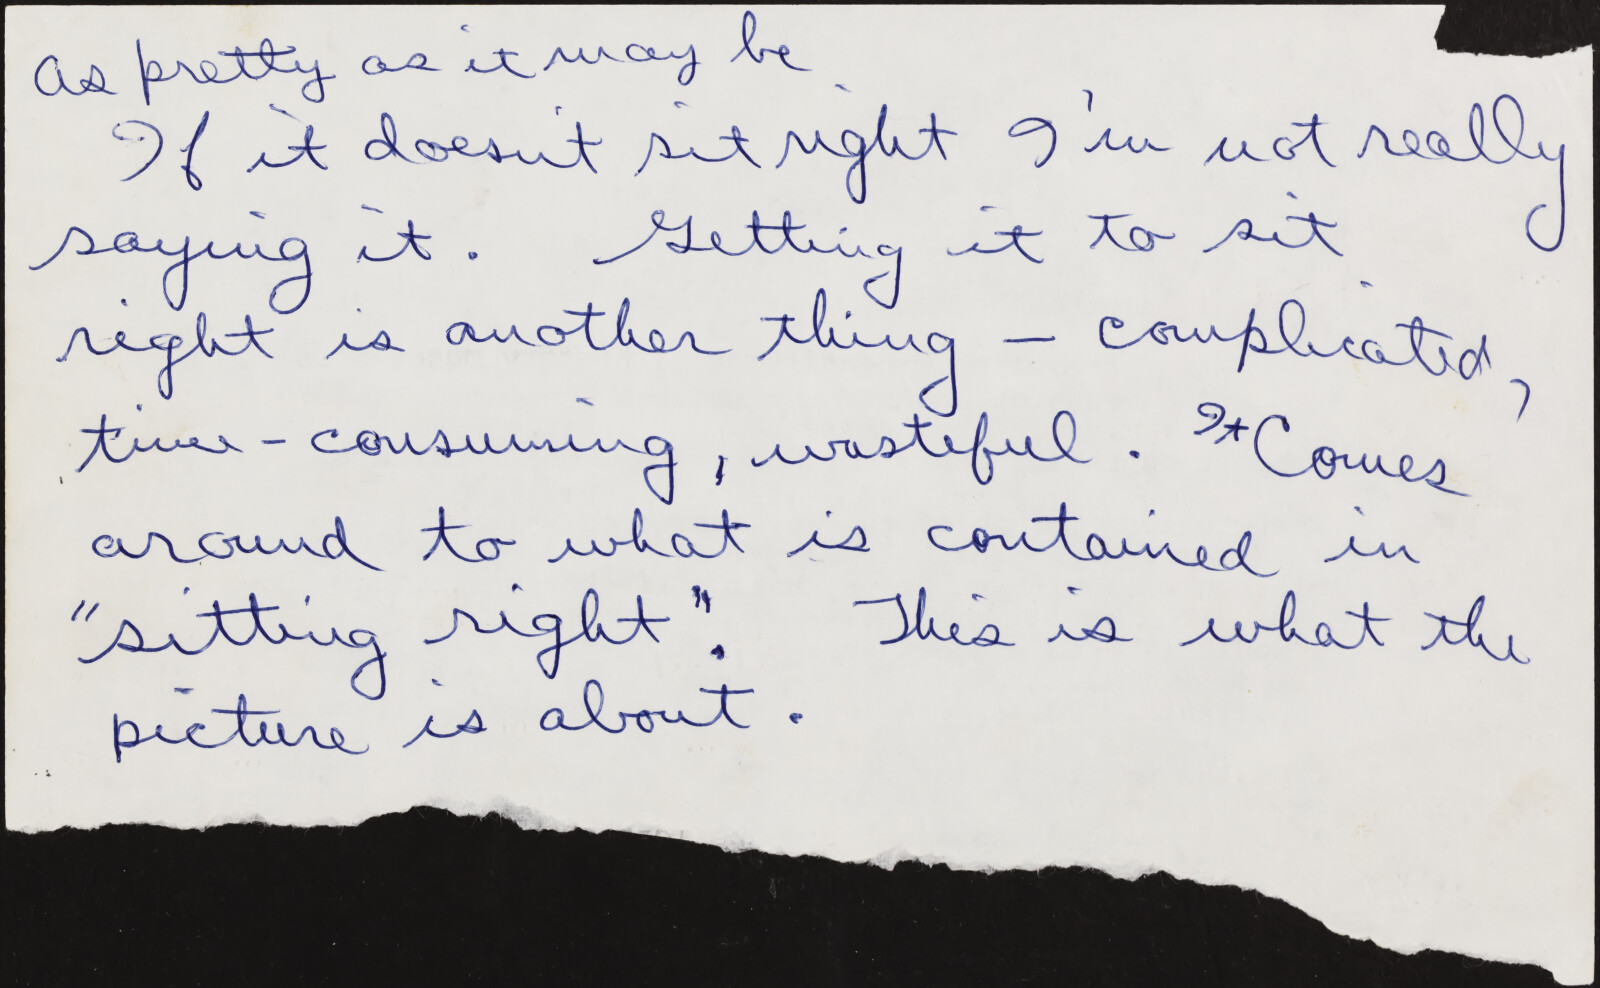 As pretty as it may be
If it doesn't sit right I'm not really
saying it. Getting it to sit
right is another thing — complicated,
time-consuming, wasteful. It Comes
around to what is contained in
"sitting right". This is what the
picture is about.